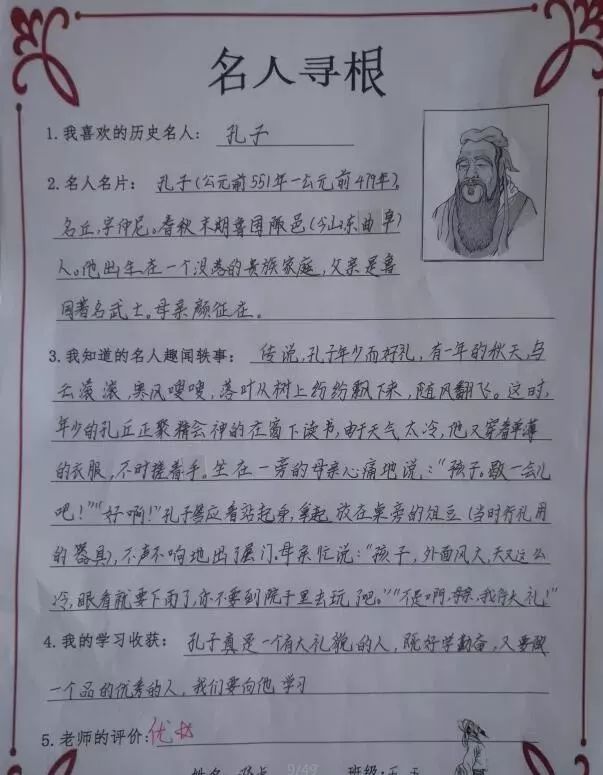 名人寻根
1.我喜欢的历史名人: 孔子
2.名人名片: 孔子(公元前551年一公元前479年)。
名丘,字仲尼。春秋末期鲁国陬邑(今山东曲阜)
人。他出生在一个没落的贵族家庭,父亲是鲁
国著名武士。母亲颜征在。
3.我知道的名人趣闻轶事: 传说,孔子年少而好礼,有一年的秋天,乌
云滚滚,寒风嗖嗖,落叶从树上纷纷飘下来,随风翻飞。这时,
年少的孔丘正聚精会神的在窗下读书,由于天气太冷,他又穿着单薄
的衣服,不时搓着手。坐在一旁的母亲心痛地说,:“孩子。歇一会儿
吧!”“好啊!”孔子答应着站起来,拿起放在桌旁的俎豆(当时行礼用
的器具),不声不响地出了屋门。母亲忙说:“孩子,外面风大,天又这么
冷,眼看就要下雨了,你不要到院子里去玩了吧。”“不是啊,母亲,我行大礼!”
4.我的学习收获: 孔子真是一个有大礼貌的人,既好学勤奋,又要做
一个品的优秀的人,我们要向他学习
5.老师的评价:优
姓名 班级:五.五
9/49